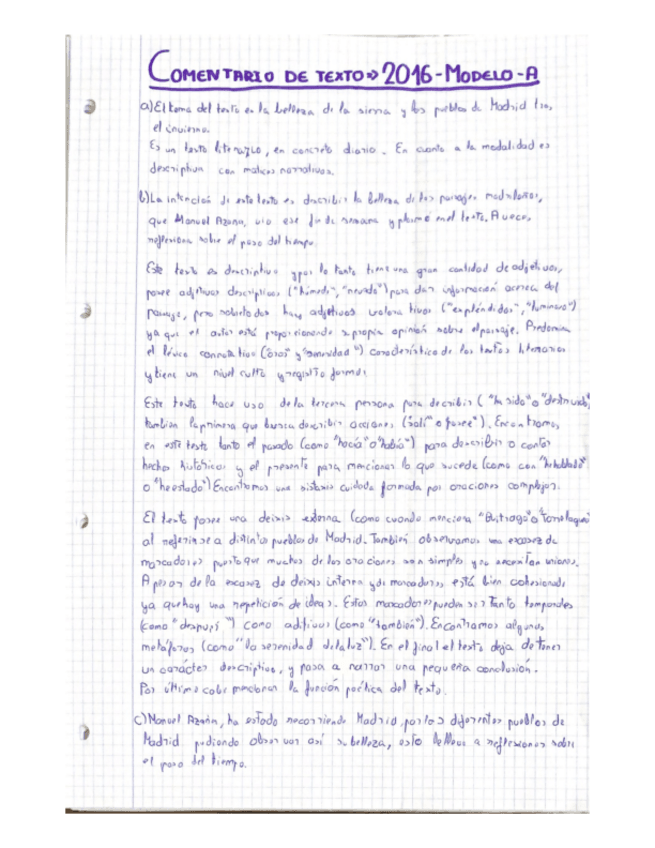 COMENTARIO DE TEXTO => 2016 - MODELO - A
a) El tema del texto es la belleza de la sierra y los pueblos de Madrid tras
el invierno.
Es un texto literario, en concreto diario. En cuanto a la modalidad es
descriptivo con matices narrativos.
b) La intención de este texto es describir la belleza de los paisajes madrileños,
que Manuel Azaña, vio ese fin de semana y plasmó en el texto. A veces,
reflexiona sobre el paso del tiempo.
Este texto es descriptivo y por lo tanto tiene una gran cantidad de adjetivos,
posee adjetivos descriptivos ("húmedo", "nevado") para dar información acerca del
paisaje, pero sobretodo hay adjetivos valorativos ("espléndidos", "luminoso")
ya que el autor está proporcionando su propia opinión sobre el paisaje. Predomina
el léxico connotativo ("oros" y "amenidad") característico de los textos literarios
y tiene un nivel culto y registro formal
Este texto hace uso de la tercera persona para describir ("ha sido" o "destruido"
también la primera que busca describir acciones ("salí" o "pasee"). Encontramos
en este texto tanto el pasado (como "hacía" o "había") para describir o contar
hechos históricos y el presente para mencionar lo que sucede (como con "he hablado"
o "he estado") Encontramos una sintaxis cuidada formada por oraciones complejas.
El texto posee una deixis externa (como cuando menciona "Buitrago" o "Torrelaguna"
al referirse a distintos pueblos de Madrid. También observamos una escasez de
marcadores puesto que muchas de las oraciones son simples y no necesitan unirse.
A pesar de la escasez de deixis interna y de marcadores, está bien cohesionado
ya que hay una repetición de ideas. Estos marcadores pueden ser tanto temporales
(como "después") como aditivos (como "también"). Encontramos algunas
metáforas (como "la serenidad de la luz"). En el final el texto deja de tener
un carácter descriptivo, y pasa a narrar una pequeña conclusión.
Por último cabe mencionar la función poética del texto.
c) Manuel Azaña, ha estado recorriendo Madrid por los diferentes pueblos de
Madrid pudiendo observar así su belleza, esto le lleva a reflexionar sobre
el paso del tiempo.